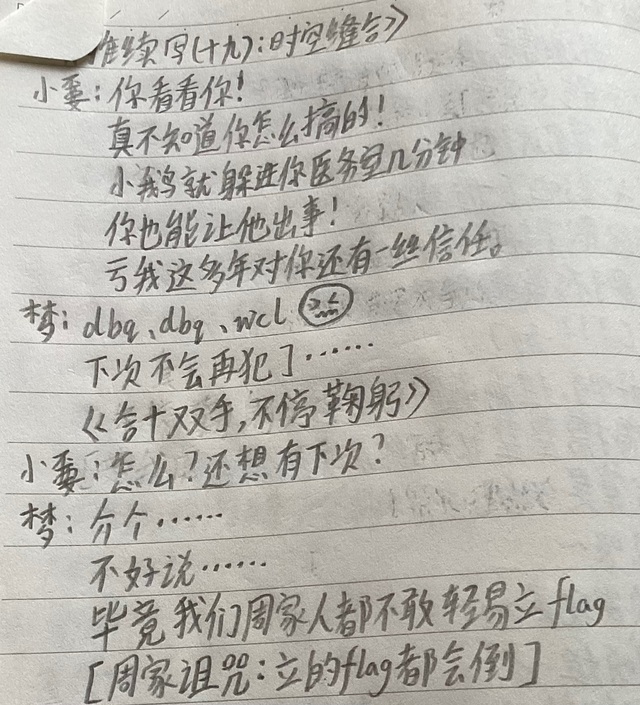 续写(十九):时空缝合》
小覃:你看看你!
真不知道你怎么搞的!
小鹅就躲进你医务室几分钟
你也能让他出事!
亏我这多年对你还有一丝信任。
梦:dbq、dbq、wcl
下次不会再犯了……
《合十双手,不停鞠躬》
小覃:怎么?还想有下次?
梦:介个……
不好说……
毕竟我们周家人都不敢轻易立flag
[周家诅咒:立的flag都会倒]